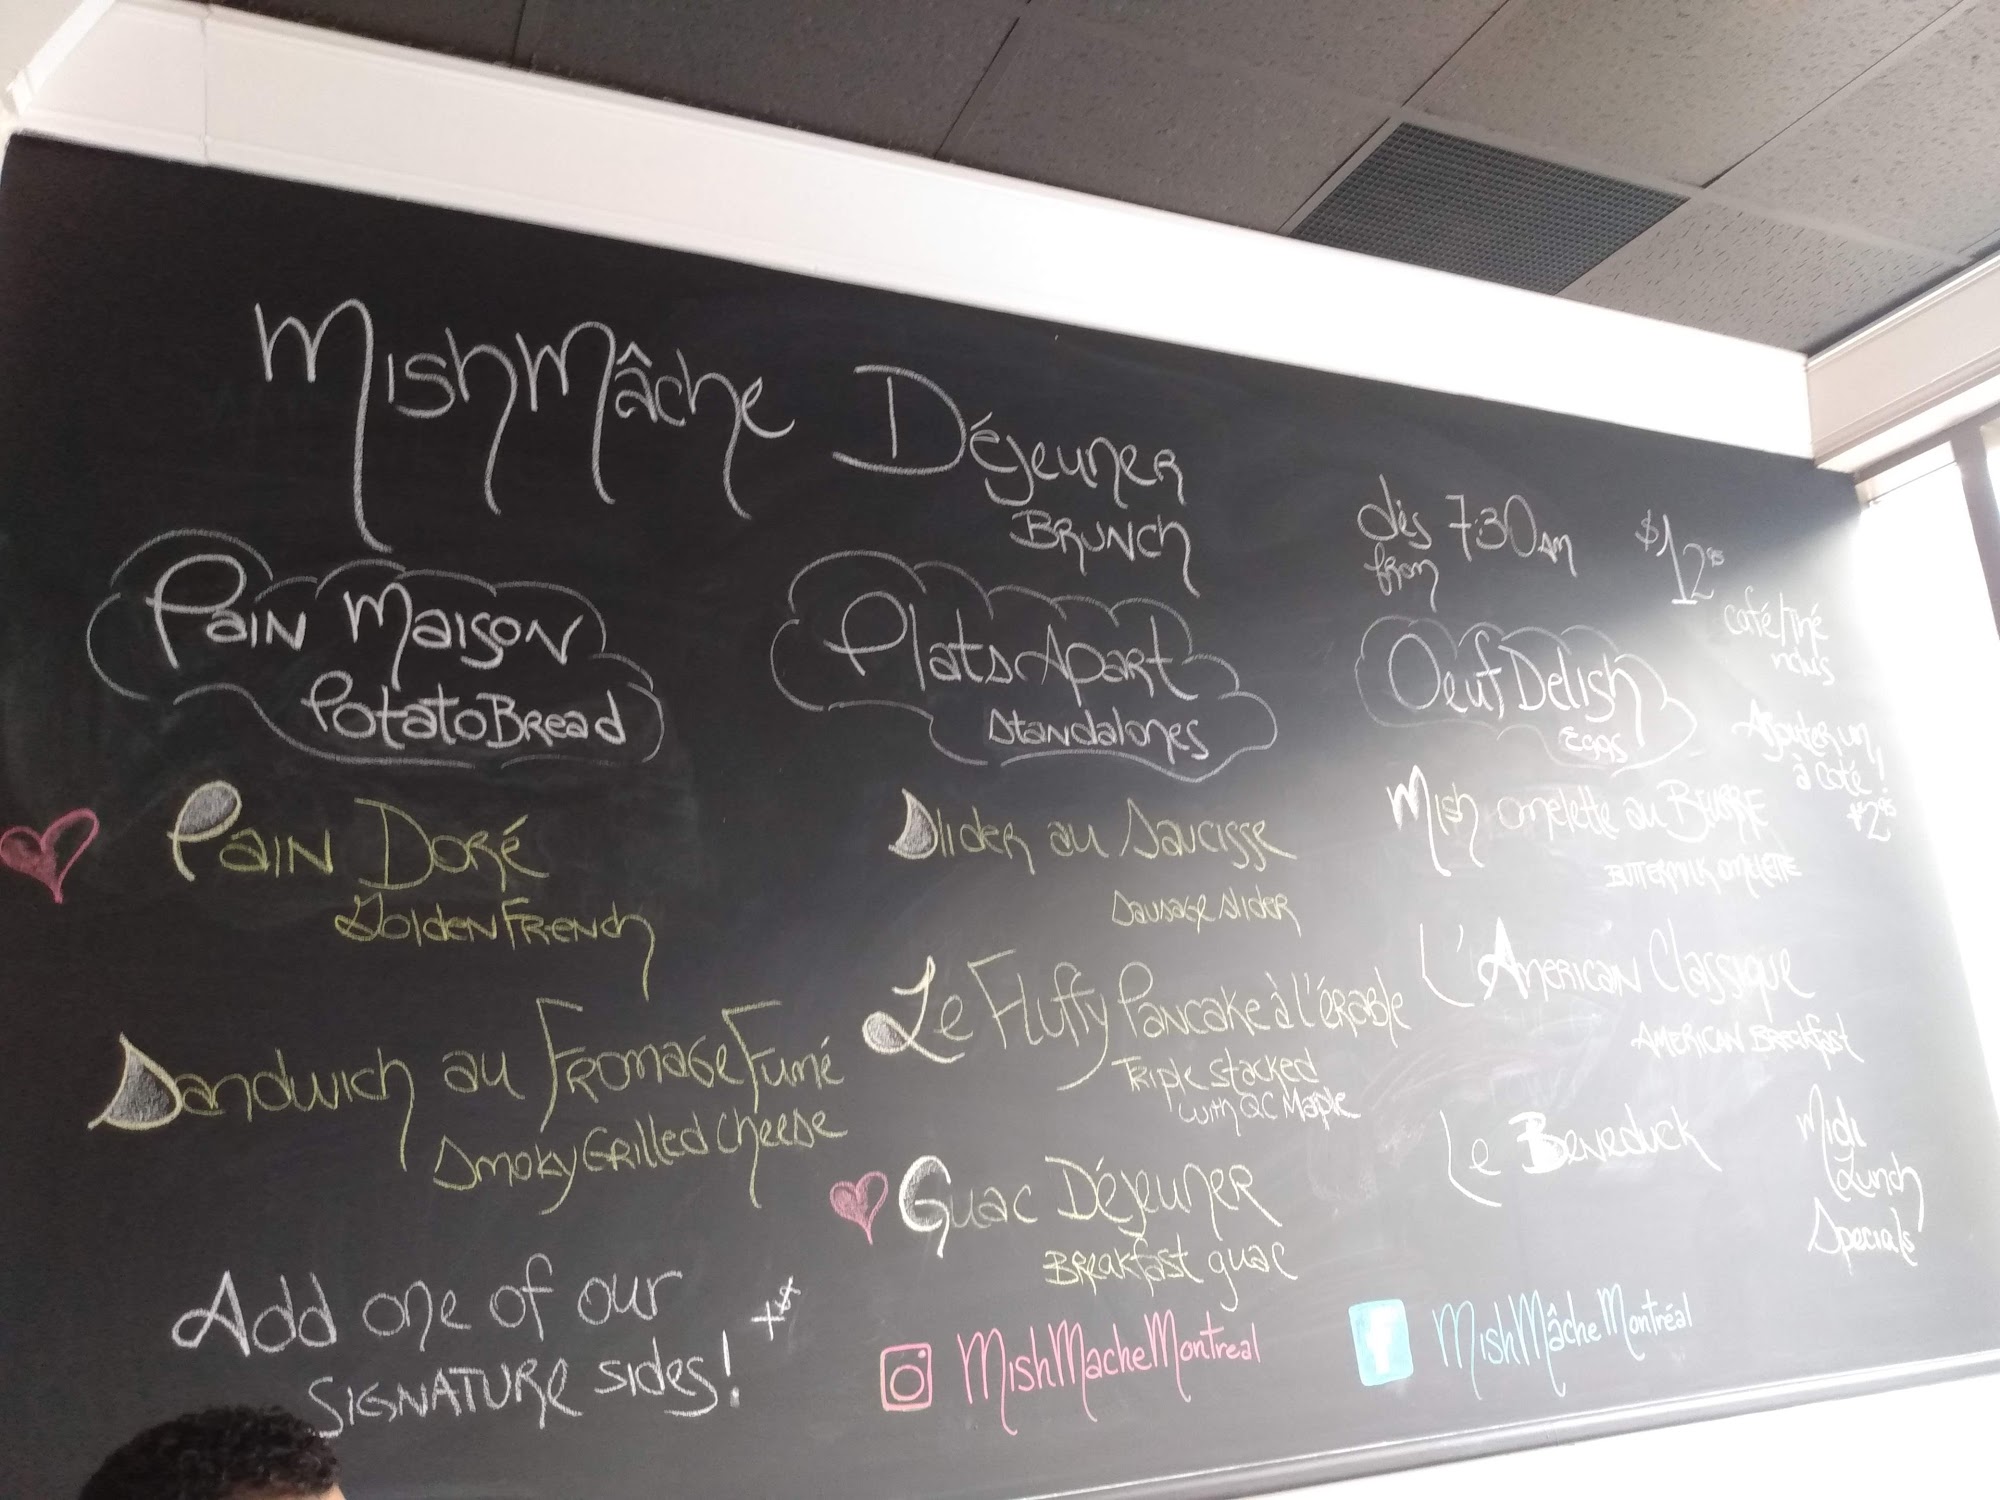 MishMâche Déjeuner
BRUNCH
dès 7:30 AM
from
$12.95
café/thé
Pain Maison
Potato Bread
Pain Doré
Golden French
Sandwich au Fromage Fumé
Smoky Grilled Cheese
Add one of our
SIGNATURE sides!
Plats Apart
Standalones
Slider au Saucisse
Sausage slider
Le Fluffy Pancake à l'érable
Triple stacked
with QC Maple
Guac Déjeuner
Breakfast guac
MishMacheMontreal
Oeuf Delish
Eggs
Ajouter un
à coté!
$2.95
Mish omelette au BEURRE
BUTTERMILK OMELETTE
L'American Classique
AMERICAN Breakfast
Le Beneduck
Midi
Lunch
Specials
f MishMâcheMontréal